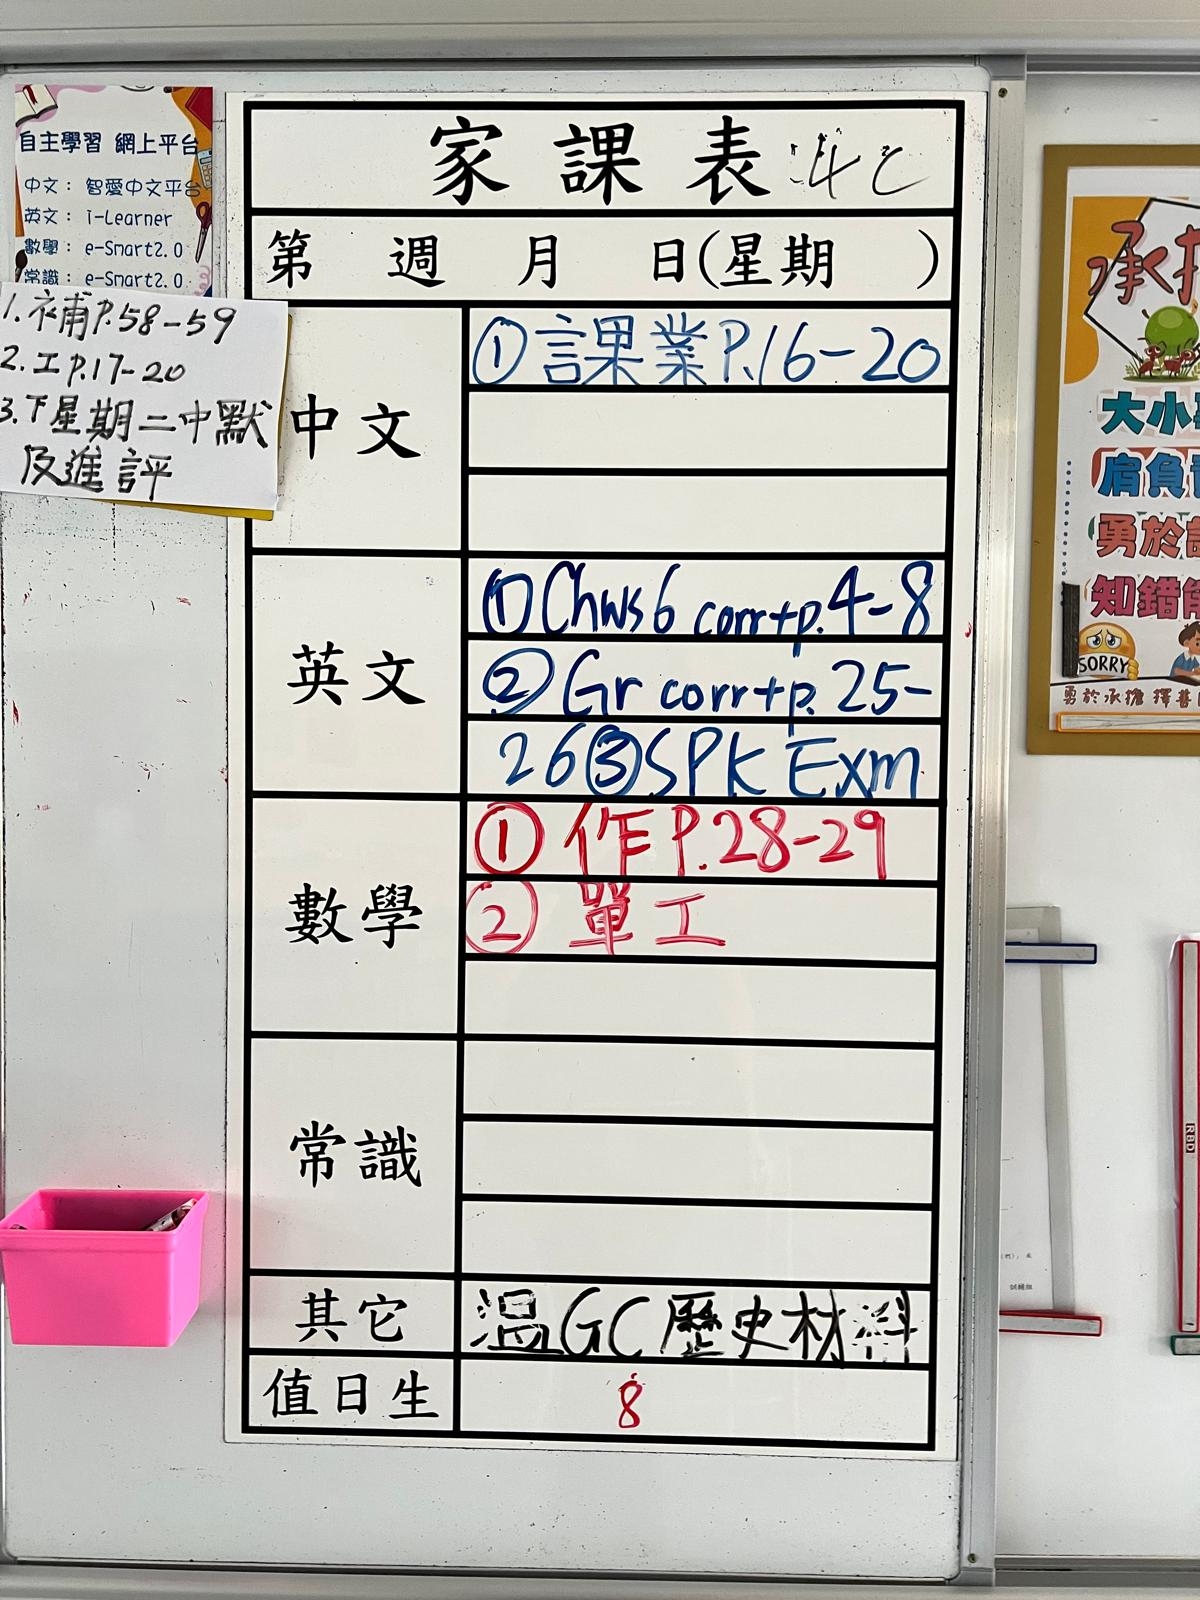 自主學習 網上平台
中文： 智愛中文平台
英文： i-Learner
數學： e-Smart2.0
常識： e-Smart2.0
1.補P.58-59
2.工P.17-20
3.下星期二中默
及進評
家課表:4C
第 週 月 日(星期 )
中文
①課業P.16-20
英文
①Chws6 corr+p.4-8
②Gr corr+p.25-
26③SPK Exm
數學
①作P.28-29
②單工
常識
其它
溫GC歷史材料
值日生
8
承
大小
肩負
勇於
知錯
SORRY
勇於承擔 擇善
RBD